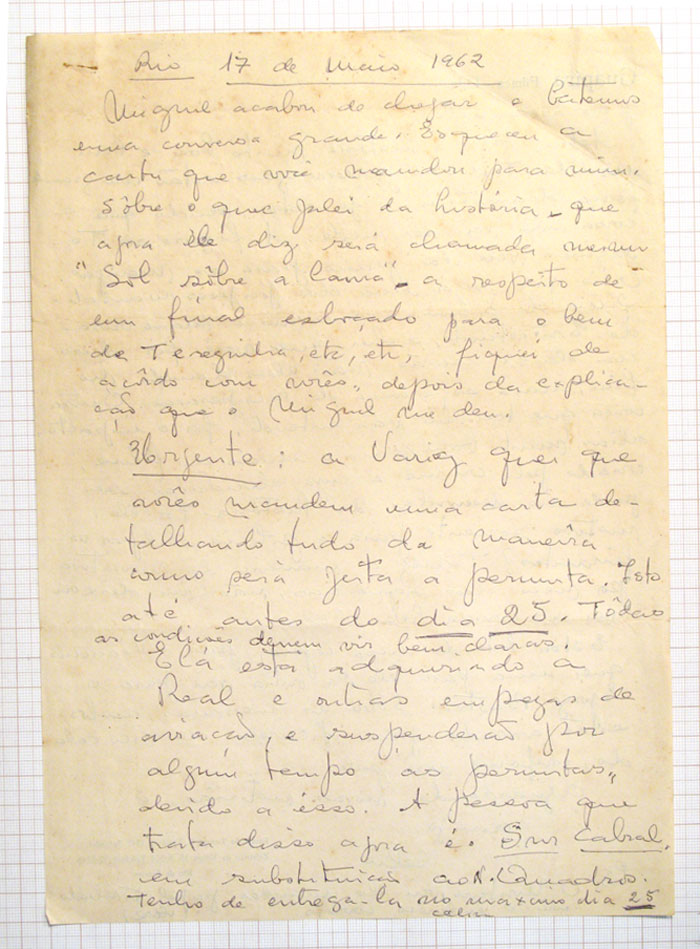 Rio 17 de Maio 1962
Miguel acabou de chegar e batemos
uma conversa grande. Esqueceu a
carta que você mandou para mim.
Sôbre o que falei da história - que
agora êle diz será chamada mesmo
"Sol sôbre a lama" - a respeito de
um final esboçado para o bem
de Terezinha, etc, etc, fiquei de
acôrdo com vocês, depois da explica-
ção que o Miguel me deu.
Urgente: a Varig quer que
vocês mandem uma carta de-
talhando tudo da maneira
como será feita a permuta. Isto
até antes do dia 25. Tôdas
as condições devem vir bem claras.
Ela está adquirindo a
Real e outras emprezas de
aviação, e suspenderão por
algum tempo as permutas,
devido a isso. A pessoa que
trata disso agora é. Snr Cabral,
em substituição ao N. Quadros.
Tenho de entrega-la no maximo dia 25